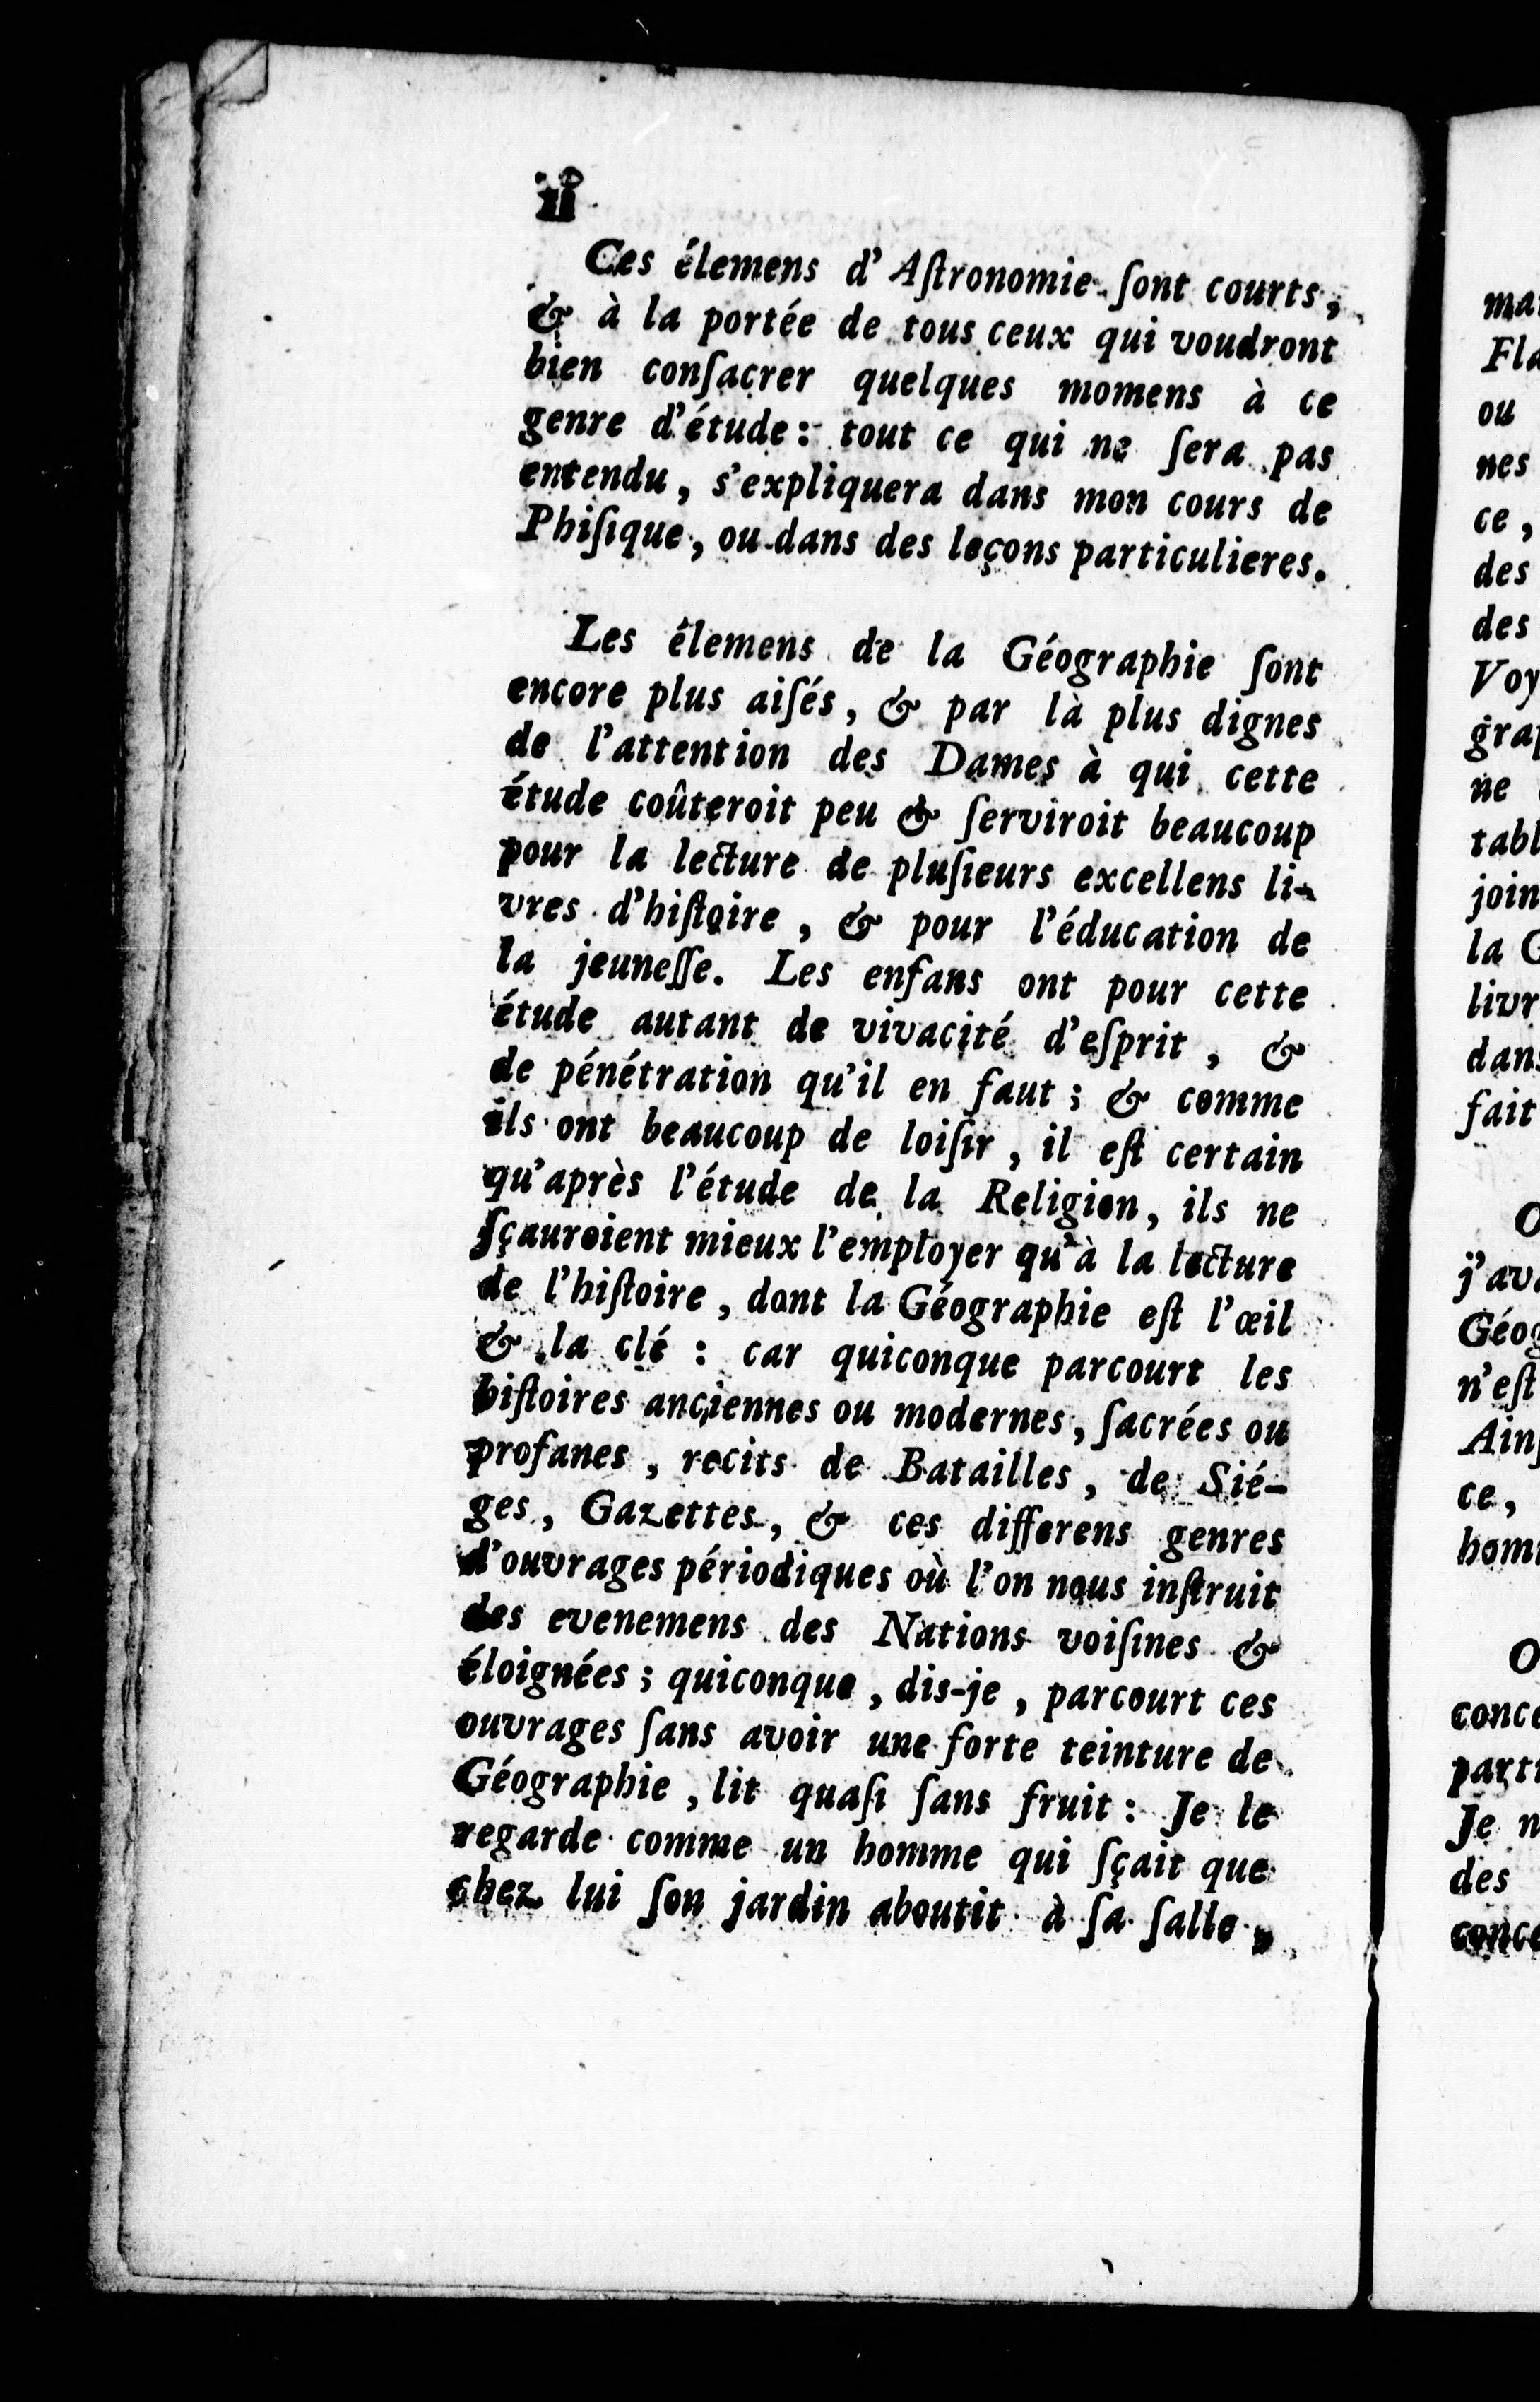 ii
Ces élemens d'Aſtronomie ſont courts,
& à la portée de tous ceux qui voudront
bien conſacrer quelques momens à ce
genre d'étude: tout ce qui ne ſera pas
entendu, s'expliquera dans mon cours de
Phiſique, ou dans des leçons particulieres.
Les élemens de la Géographie ſont
encore plus aiſés, & par là plus dignes
de l'attention des Dames à qui cette
étude coûteroit peu & ſerviroit beaucoup
pour la lecture de pluſieurs excellens li-
vres d'hiſtoire, & pour l'éducation de
la jeuneſſe. Les enfans ont pour cette
étude autant de vivacité d'eſprit, &
de pénétration qu'il en faut; & comme
ils ont beaucoup de loiſir, il eſt certain
qu'après l'étude de la Religion, ils ne
ſçauroient mieux l'employer qu'à la lecture
de l'hiſtoire, dont la Géographie eſt l'œil
& la clé: car quiconque parcourt les
hiſtoires anciennes ou modernes, ſacrées ou
profanes, recits de Batailles, de Sié-
ges, Gazettes, & ces differens genres
d'ouvrages périodiques où l'on nous inſtruit
des evenemens des Nations voiſines &
éloignées; quiconque, dis-je, parcourt ces
ouvrages ſans avoir une forte teinture de
Géographie, lit quaſi ſans fruit: Je le
regarde comme un homme qui ſçait que
chez lui ſon jardin aboutit à ſa ſalle,
ma
Fla
ou
nes
ce,
des
des
Voy
gra
ne
tabl
join
la G
livr
dans
fait
O
j'av
Géog
n'eſt
Ainſ
ce,
hom
O
conce
parti
Je n
des
conce